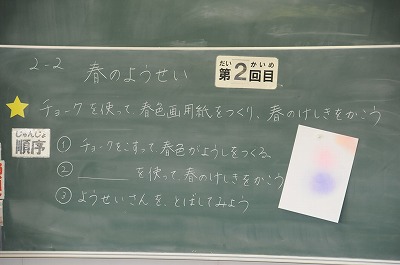 2-2 春のようせい
だい かいめ
第2回目
チョークを使って、春色画用紙をつくり、春のけしきをかこう
じゅんじょ
順序
① チョークをこすって春色がようしをつくる。
② ______を使って、春のけしきをかこう
③ ようせいさんを、とばしてみよう